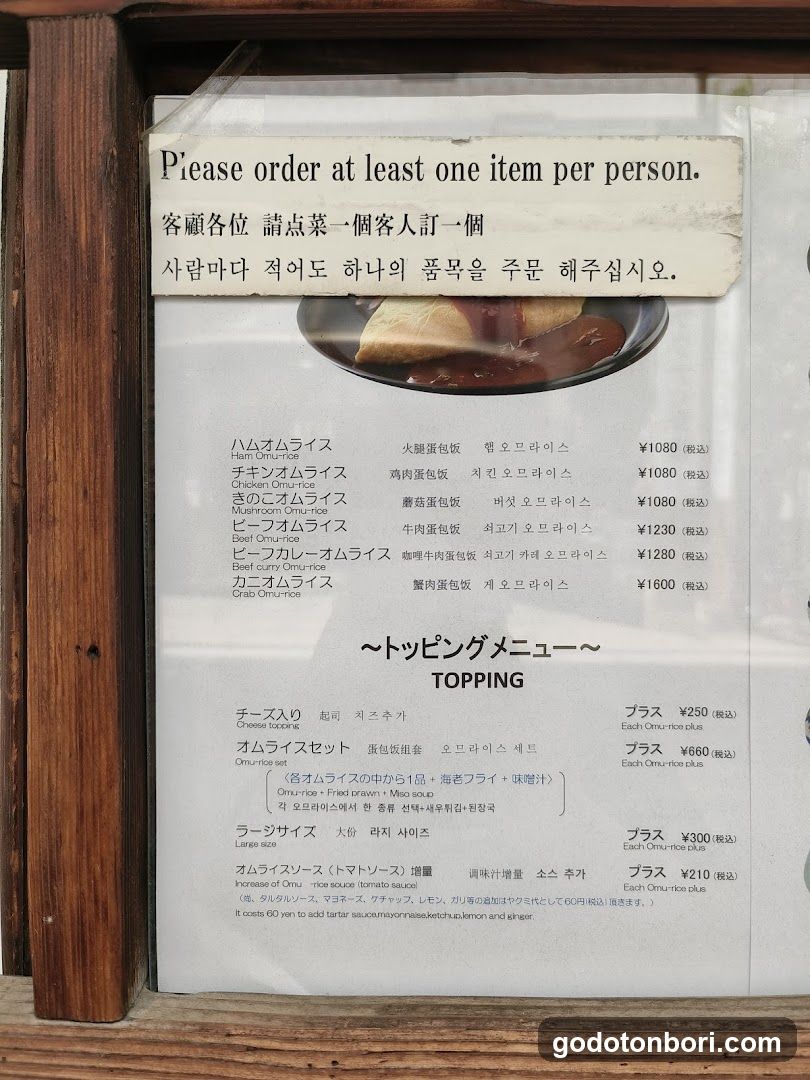 Please order at least one item per person.
客顧各位 請点菜一個客人訂一個
사람마다 적어도 하나의 품목을 주문 해주십시오.
ハムオムライス 火腿蛋包饭 햄 오므라이스 ¥1080 (税込)
Ham Omu-rice
チキンオムライス 鸡肉蛋包饭 치킨 오므라이스 ¥1080 (税込)
Chicken Omu-rice
きのこオムライス 蘑菇蛋包饭 버섯 오므라이스 ¥1080 (税込)
Mushroom Omu-rice
ビーフオムライス 牛肉蛋包饭 쇠고기 오므라이스 ¥1230 (税込)
Beef Omu-rice
ビーフカレーオムライス 咖哩牛肉蛋包饭 쇠고기 카레 오므라이스 ¥1280 (税込)
Beef curry Omu-rice
カニオムライス 蟹肉蛋包饭 게 오므라이스 ¥1600 (税込)
Crab Omu-rice
～トッピングメニュー～
TOPPING
チーズ入り 起司 치즈추가 プラス ¥250 (税込)
Cheese topping Each Omu-rice plus
オムライスセット 蛋包饭组套 오므라이스 세트 プラス ¥660 (税込)
Omu-rice set Each Omu-rice plus
〈各オムライスの中から1品 + 海老フライ + 味噌汁〉
Omu-rice + Fried prawn + Miso soup
각 오므라이스에서 한 종류 선택+새우튀김+된장국
ラージサイズ 大份 라지 사이즈 プラス ¥300 (税込)
Large size Each Omu-rice plus
オムライスソース（トマトソース）増量 调味汁增量 소스 추가 プラス ¥210 (税込)
Increase of Omu -rice souce (tomato sauce) Each Omu-rice plus
（尚、タルタルソース、マヨネーズ、ケチャップ、レモン、ガリ等の追加はヤクミ代として60円(税込)頂きます。）
It costs 60 yen to add tartar sauce,mayonnaise,ketchup,lemon and ginger.
godotonbori.com